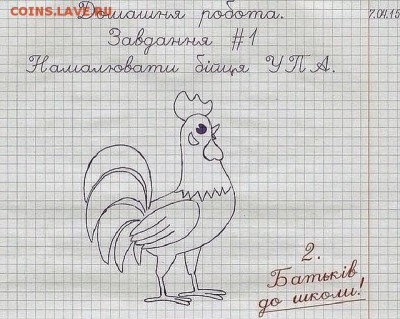 COINS.LAVE.RU
Домашня робота.
7.04.15
Завдання #1
Намалювати бійця УПА.
2.
Батьків
до школи!